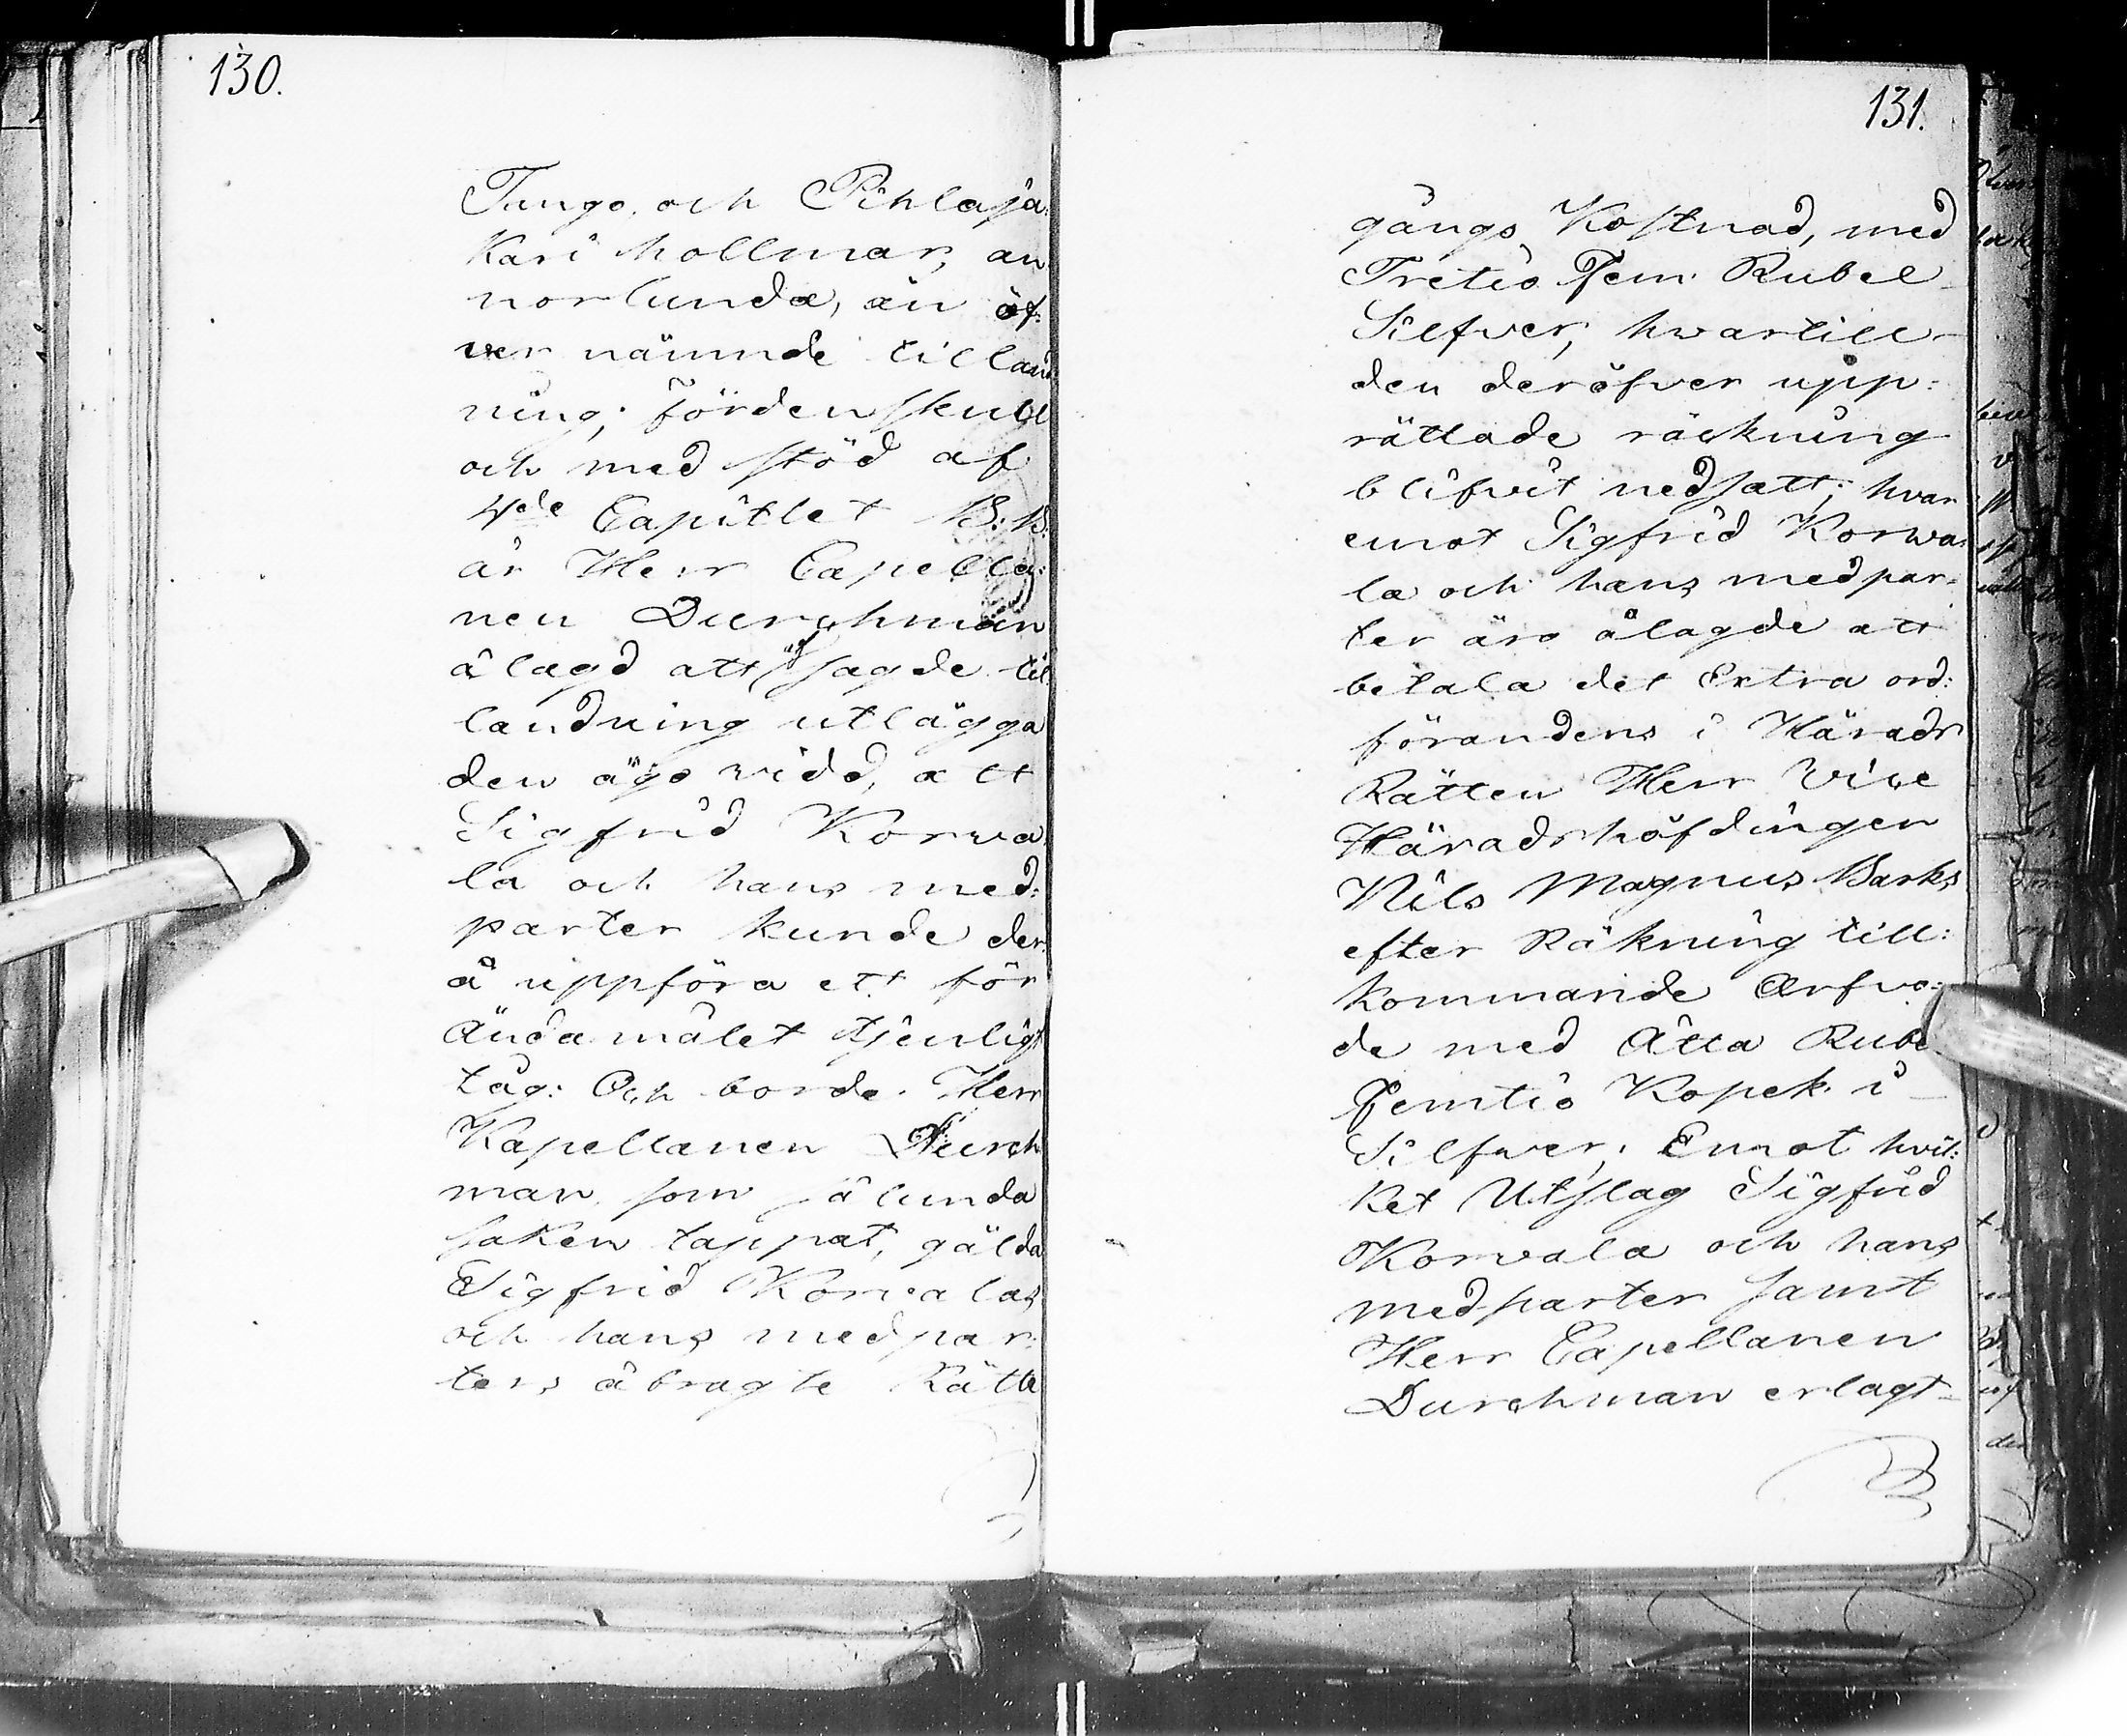 130.
Tungo, och Pihlaja:
Kari hollmar, an
norlunda, än öf:
ver nämnde tilland
ning; förden skull
och med stöd af
4de Capitlet B: B.
är Herr Capella:
nen Durchman
ålagd att, å sagde til
landning utlägga
den ägo vidd, att
Sigfrid Korva
la och hans med:
parter kunde der
å uppföra ett för
ändamålet tjenligt
tåg: Och borde Herr
Kapellanen Durch
man, som sålunda
saken tappat, gälda
Sigfrid Korvalas
och hans medpar:
ters åbragte Rätte
131.
gångs Kostnad, med
Tretio Fem Rubel
Silfver, hwartill
den deröfver upp:
rättade räckning
blifvit nedsatt; hvar
emot Sigfrid Korwa:
la och hans medpar:
ter äro ålagde att
betala det Extra ord:
förandens i Härads
Rätten Herr Vice
Häradshöfdingen
Nils Magnus Barks
efter Räkning till:
kommande Arfvo:
de med Åtta Rube
Femtio Kopek i
Silfver; Emot hvil:
ket Utslag Sigfrid
Korvala och hans
medparter samt
Herr Capellanen
Durchman erlagt